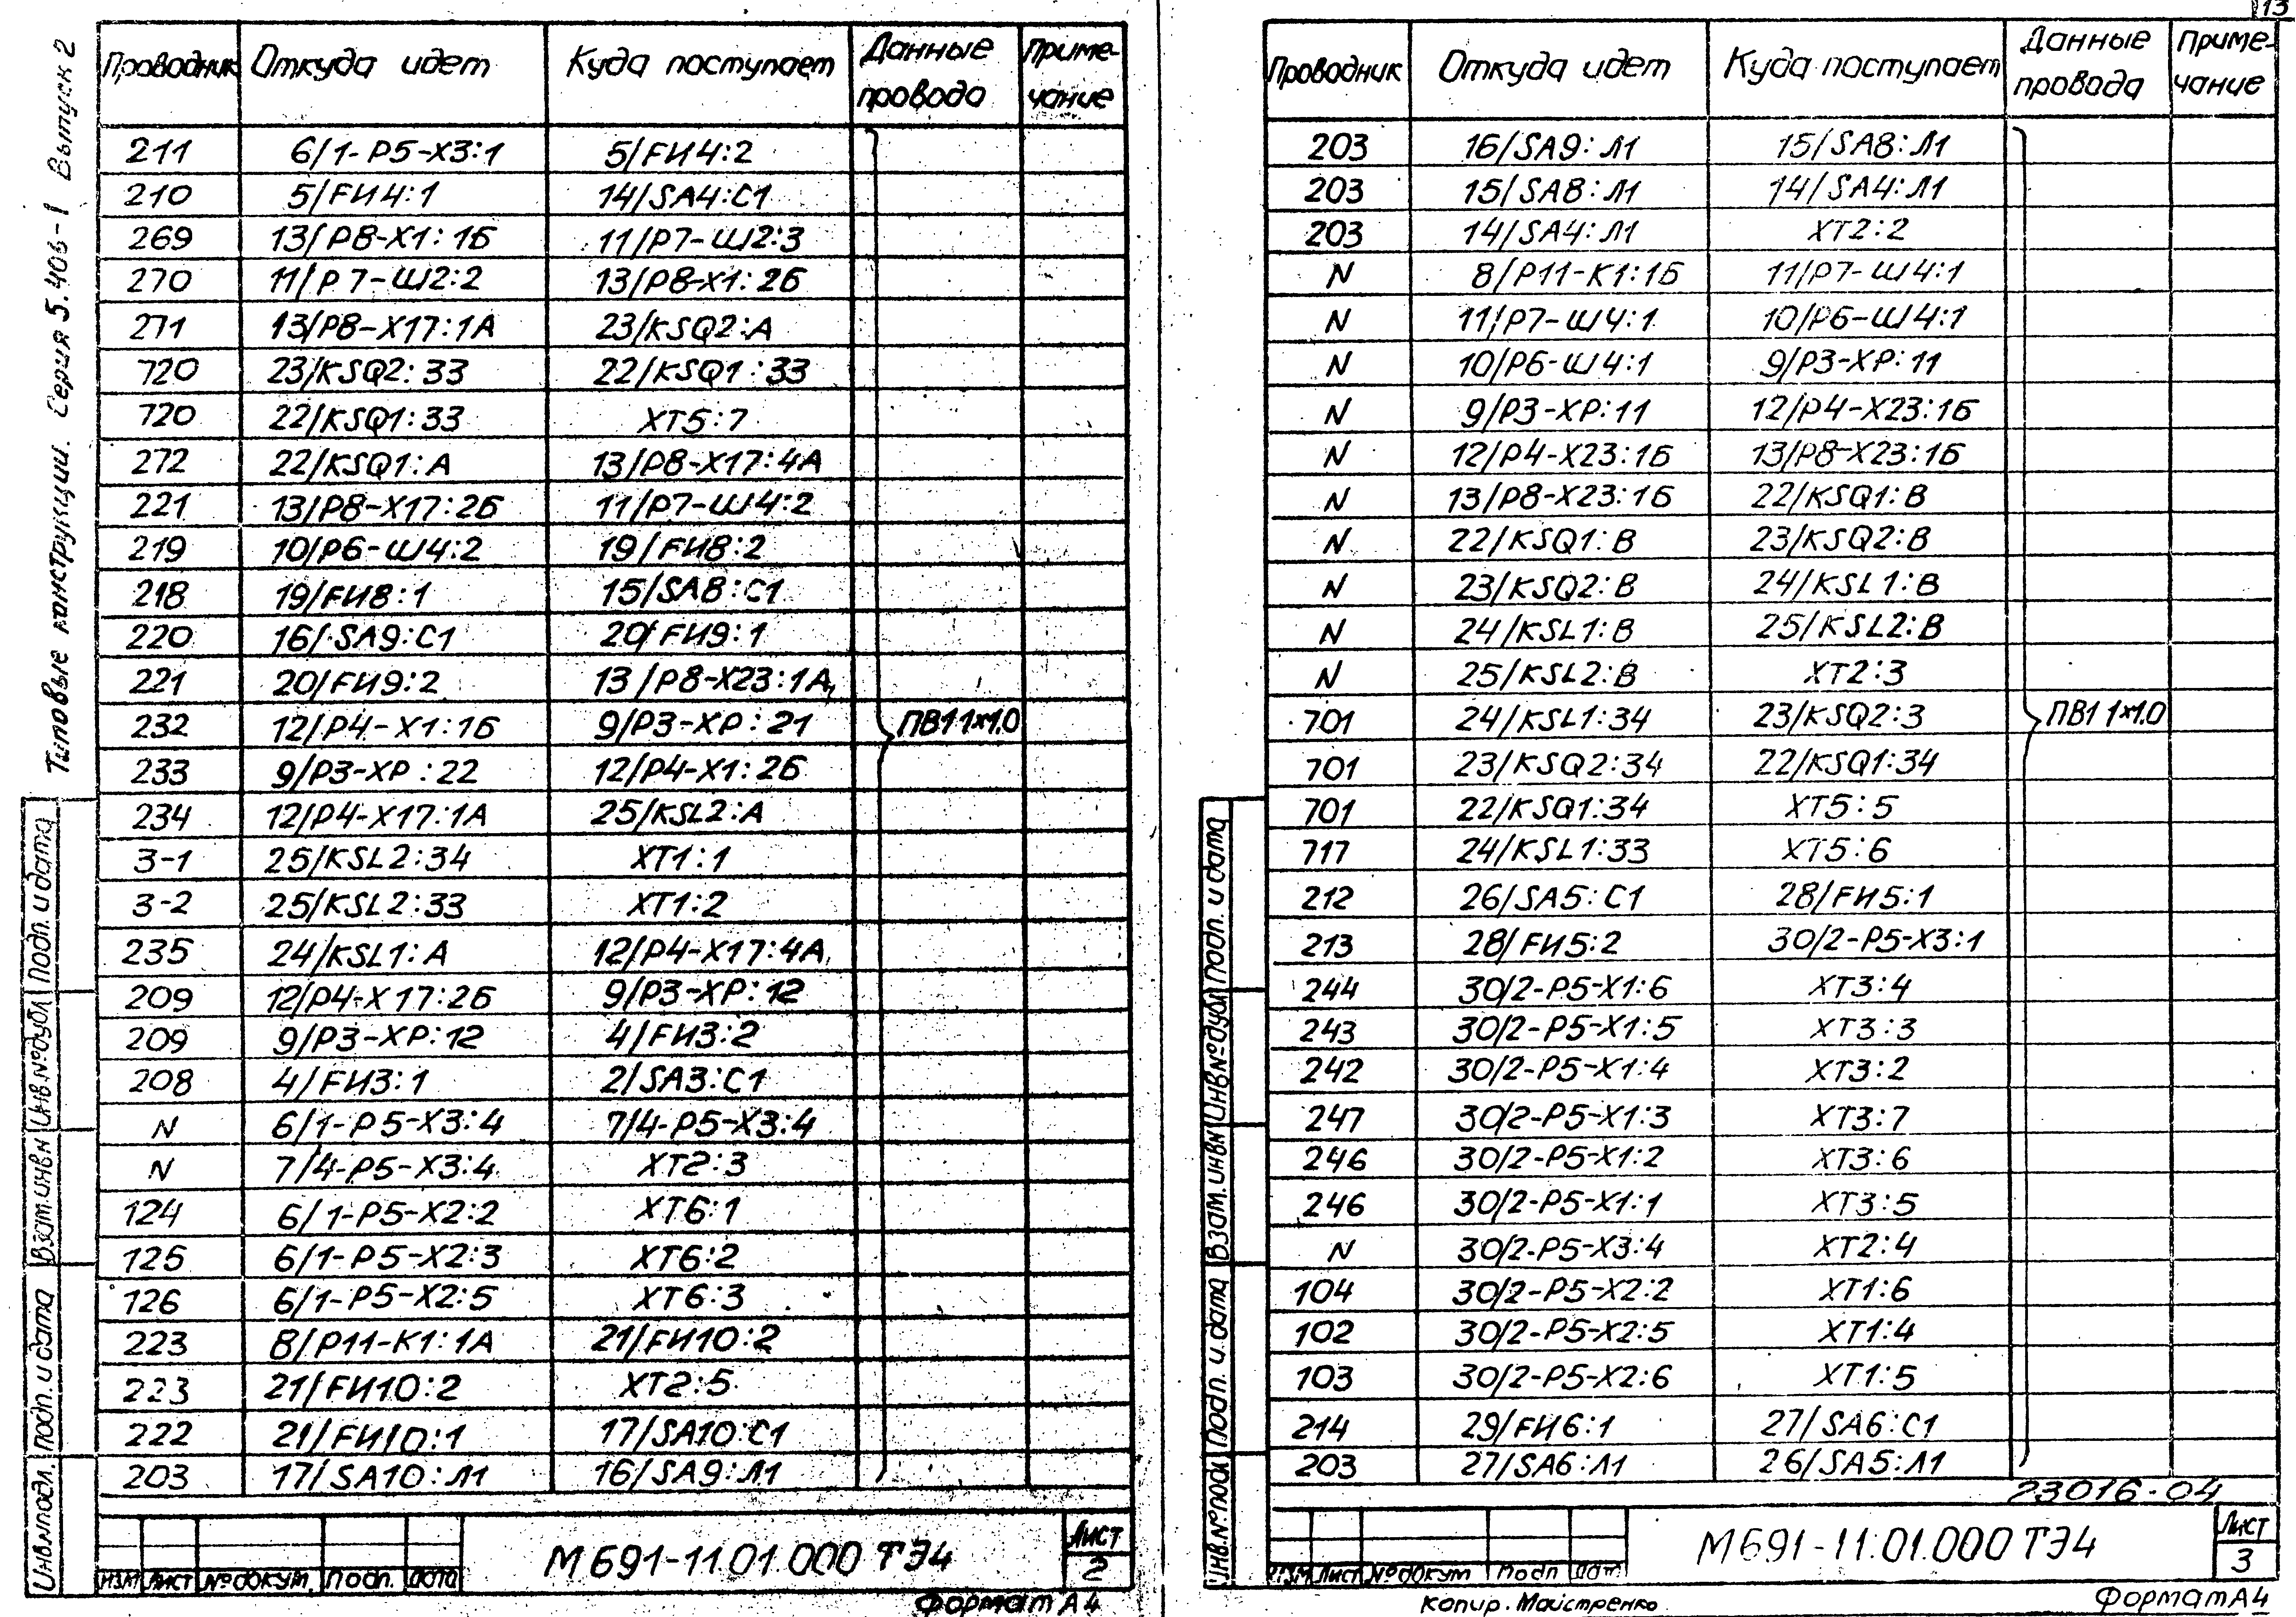 Типовые конструкции. Серия 5.403-1 Выпуск 2
Проводник Откуда идет Куда поступает Данные провода Примечание
211 6/1-Р5-Х3:1 5/FИ4:2
210 5/FИ4:1 14/SA4:C1
269 13/Р8-Х1:1Б 11/Р7-Ш2:3
270 11/Р7-Ш2:2 13/Р8-Х1:2Б
271 13/Р8-Х17:1А 23/KSQ2:А
720 23/KSQ2:33 22/KSQ1:33
720 22/KSQ1:33 ХТ5:7
272 22/KSQ1:А 13/Р8-Х17:4А
221 13/Р8-Х17:2Б 11/Р7-Ш4:2
219 10/Р6-Ш4:2 19/FИ8:2
218 19/FИ8:1 15/SA8:C1
220 16/SA9:C1 20/FИ9:1
221 20/FИ9:2 13/Р8-Х23:1А
232 12/Р4-Х1:1Б 9/Р3-ХР:21 ПВ1 1х1.0
233 9/Р3-ХР:22 12/Р4-Х1:2Б
234 12/Р4-Х17:1А 25/KSL2:А
3-1 25/KSL2:34 ХТ1:1
3-2 25/KSL2:33 ХТ1:2
235 24/KSL1:А 12/Р4-Х17:4А
209 12/Р4-Х17:2Б 9/Р3-ХР:12
209 9/Р3-ХР:12 4/FИ3:2
208 4/FИ3:1 2/SA3:C1
N 6/1-Р5-Х3:4 7/4-Р5-Х3:4
N 7/4-Р5-Х3:4 ХТ2:3
124 6/1-Р5-Х2:2 ХТ6:1
125 6/1-Р5-Х2:3 ХТ6:2
126 6/1-Р5-Х2:5 ХТ6:3
223 8/Р11-К1:1А 21/FИ10:2
223 21/FИ10:2 ХТ2:5
222 21/FИ10:1 17/SA10:C1
203 17/SA10:Л1 16/SA9:Л1
Инв.№подл. Подп. и дата Взам.инв№ Инв.№дубл Подп. и дата
Изм Лист №докум. Подп. Дата
М691-11.01.000 ТЭ4
Лист
2
Формат А4
13
Проводник Откуда идет Куда поступает Данные провода Примечание
203 16/SA9:Л1 15/SA8:Л1
203 15/SA8:Л1 14/SA4:Л1
203 14/SA4:Л1 ХТ2:2
N 8/Р11-К1:1Б 11/Р7-Ш4:1
N 11/Р7-Ш4:1 10/Р6-Ш4:1
N 10/Р6-Ш4:1 9/Р3-ХР:11
N 9/Р3-ХР:11 12/Р4-Х23:1Б
N 12/Р4-Х23:1Б 13/Р8-Х23:1Б
N 13/Р8-Х23:1Б 22/KSQ1:В
N 22/KSQ1:В 23/KSQ2:В
N 23/KSQ2:В 24/KSL1:В
N 24/KSL1:В 25/KSL2:В
N 25/KSL2:В ХТ2:3
701 24/KSL1:34 23/KSQ2:3 ПВ1 1х1.0
701 23/KSQ2:34 22/KSQ1:34
701 22/KSQ1:34 ХТ5:5
717 24/KSL1:33 ХТ5:6
212 26/SA5:C1 28/FИ5:1
213 28/FИ5:2 30/2-Р5-Х3:1
244 30/2-Р5-Х1:6 ХТ3:4
243 30/2-Р5-Х1:5 ХТ3:3
242 30/2-Р5-Х1:4 ХТ3:2
247 30/2-Р5-Х1:3 ХТ3:7
246 30/2-Р5-Х1:2 ХТ3:6
246 30/2-Р5-Х1:1 ХТ3:5
N 30/2-Р5-Х3:4 ХТ2:4
104 30/2-Р5-Х2:2 ХТ1:6
102 30/2-Р5-Х2:5 ХТ1:4
103 30/2-Р5-Х2:6 ХТ1:5
214 29/FИ6:1 27/SA6:C1
203 27/SA6:Л1 26/SA5:Л1
23016-04
Инв.№подл Подп. и дата Взам.инв№ Инв№дубл Подп. и дата
Изм Лист №докум Подп Дат
М691-11.01.000 ТЭ4
Лист
3
Копир. Майстренко
Формат А4